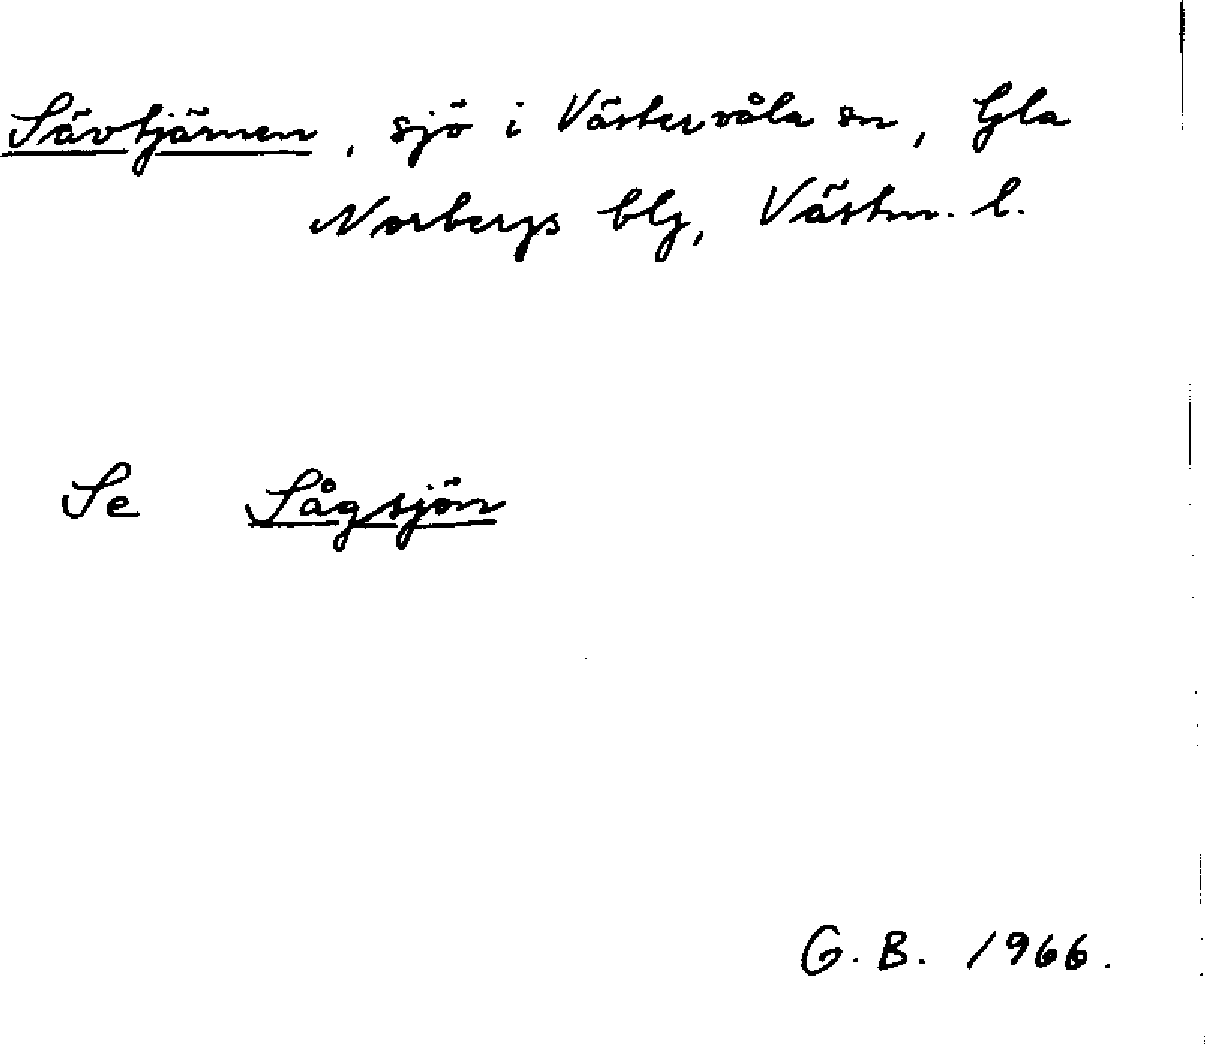 Sävtjärnen, sjö i Västervåla sn, Gla
Norbergs blg, Västm. l.
Se Sågsjön
G. B. 1966.